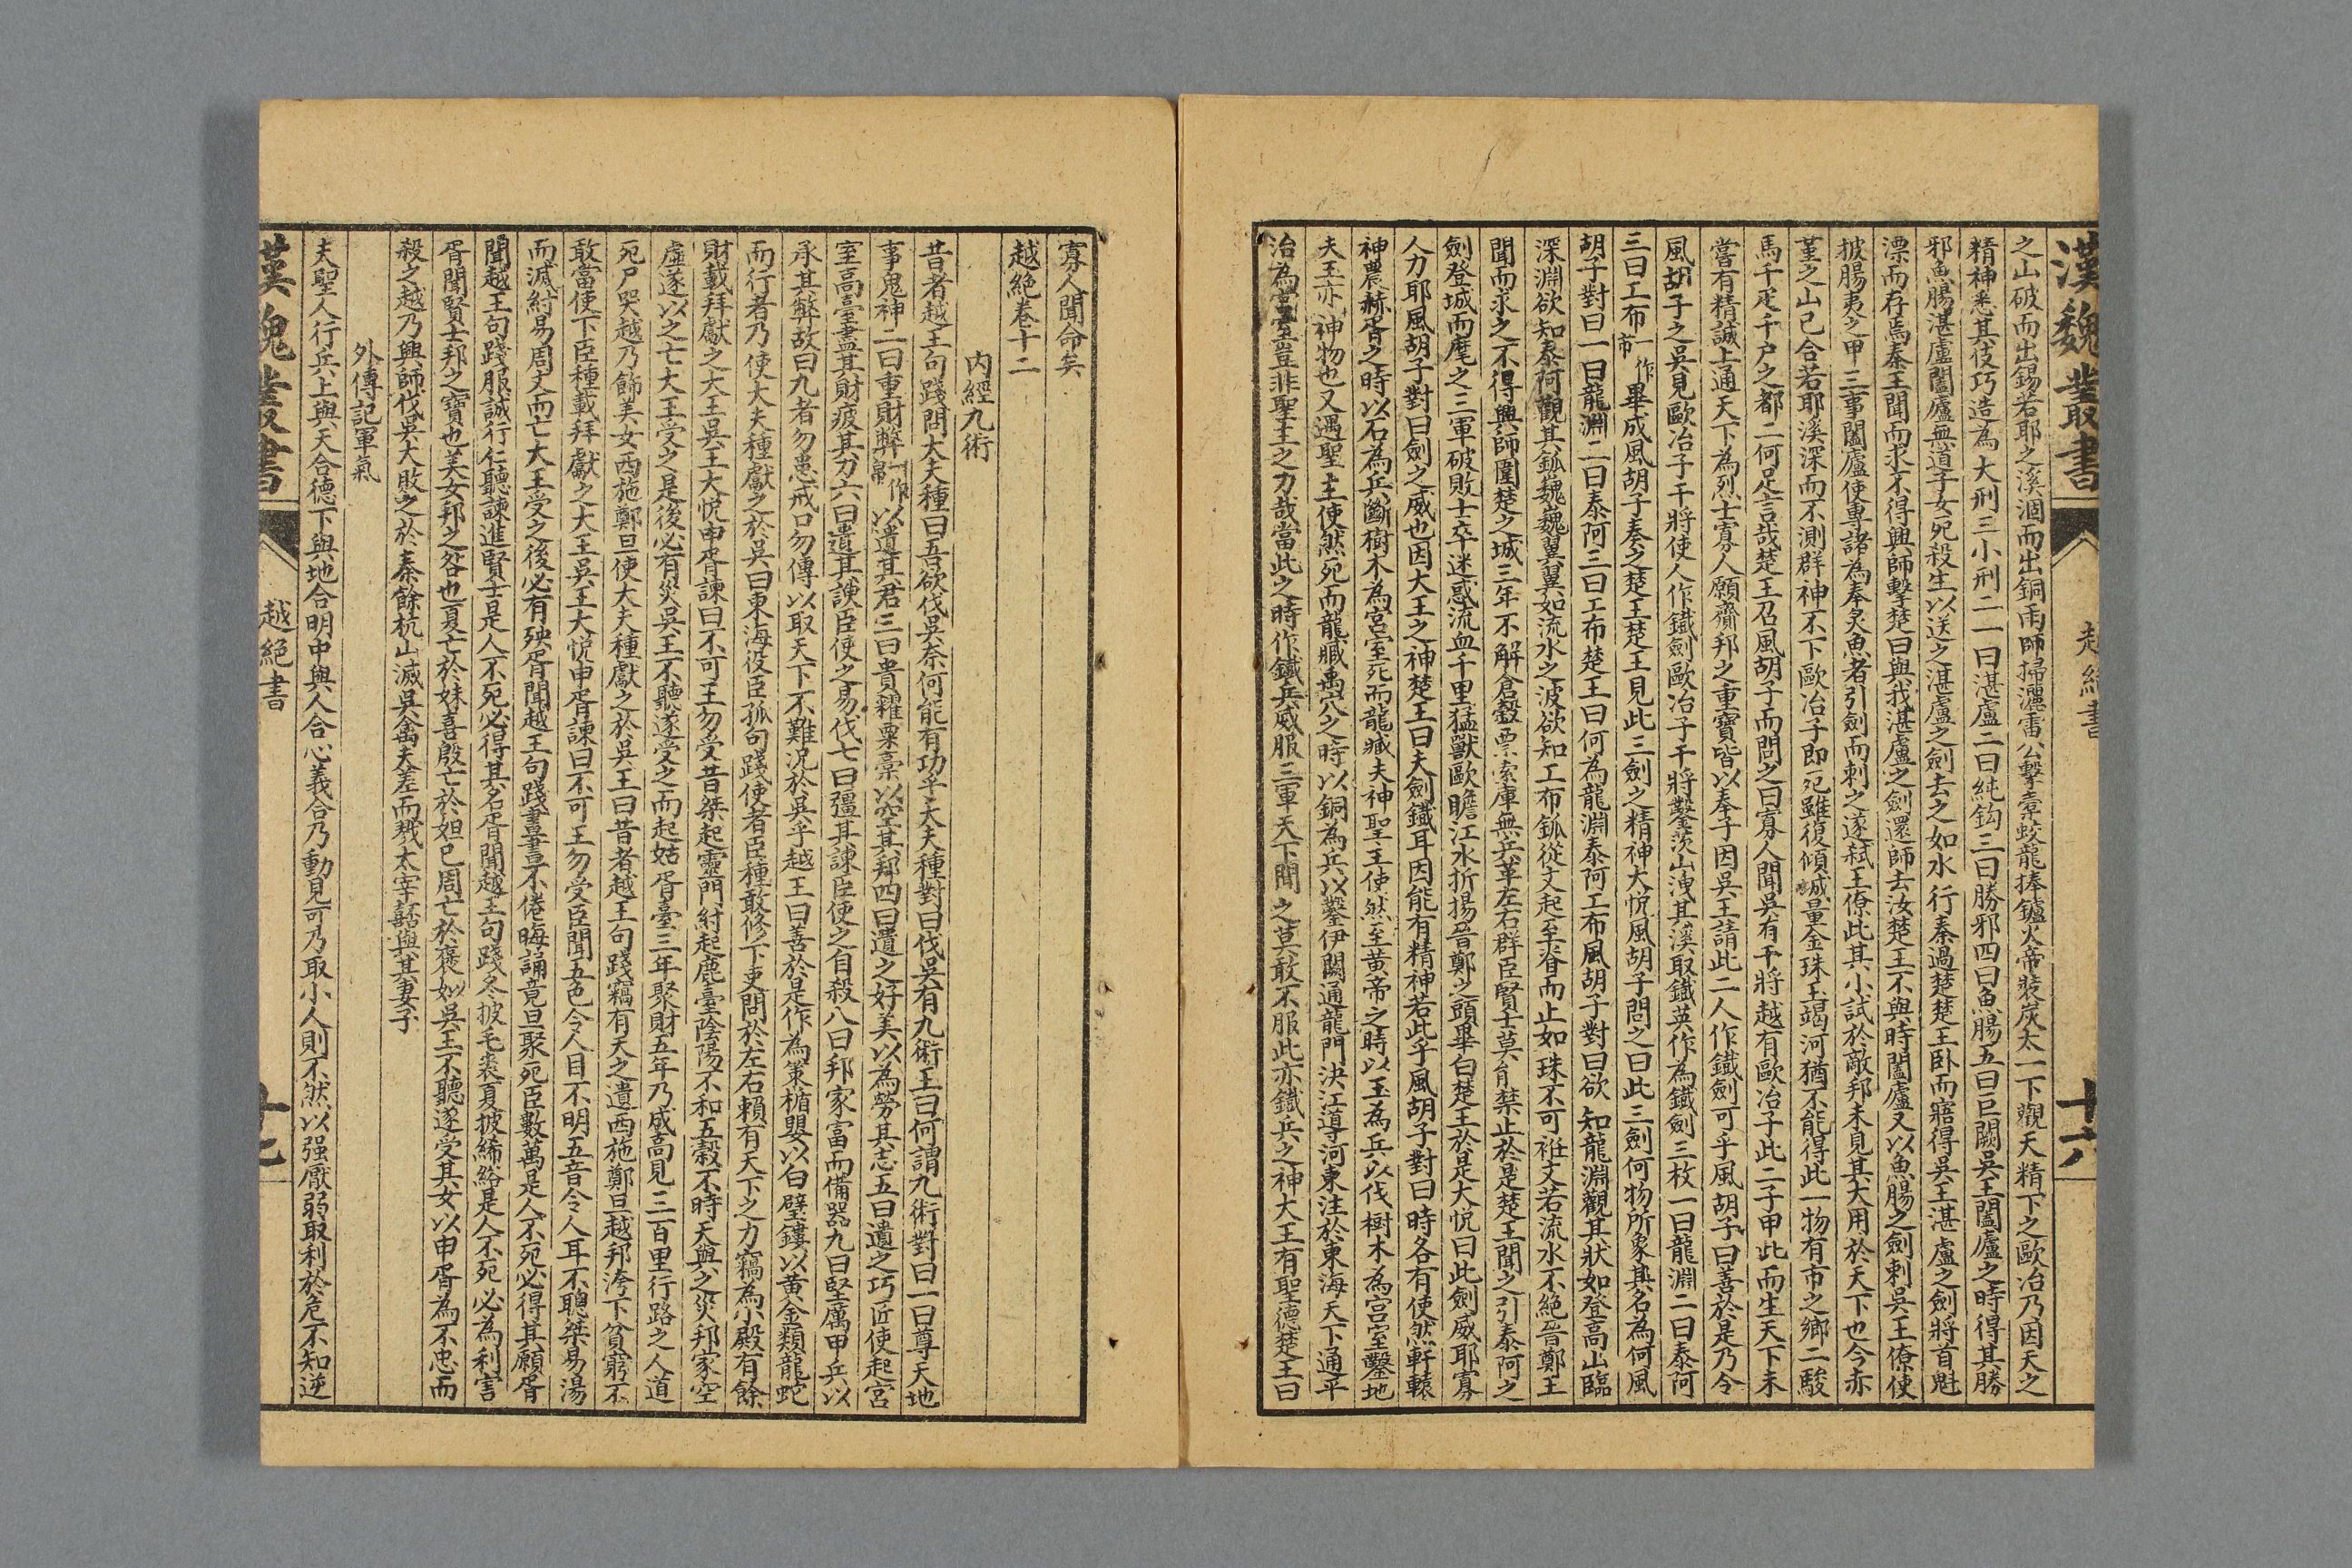 漢魏叢書
越絕書
十六
之山破而出錫若耶之溪涸而出銅雨師掃灑雷公擊橐蛟龍捧鑪火帝裝炭太一下觀天精下之歐冶乃因天之
精神悉其伎巧造為大刑三小刑二一曰湛盧二曰純鈎三曰勝邪四曰魚腸五曰巨闕吳王闔廬之時得其勝
邪魚腸湛盧闔廬無道子女死殺生以送之湛盧之劍去之如水行秦過楚楚王卧而寤得吳王湛盧之劍將首魁
漂而存焉秦王聞而求不得興師擊楚曰與我湛盧之劍還師去汝楚王不與時闔廬又以魚腸之劍刺吳王僚使
披腸夷之甲三事闔廬使專諸為奉炙魚者引劍而刺之遂弒王僚此其小試於敵邦未見其大用於天下也今赤
堇之山已合若耶溪深而不測群神不下歐冶子即死雖復傾城量金珠玉竭河猶不能得此一物有市之鄉二駿
馬千疋千户之都二何足言哉楚王召風胡子而問之曰寡人聞吳有干將越有歐冶子此二子甲此而生天下未
嘗有精誠上通天下為烈士寡人願齎邦之重寶皆以奉子因吳王請此二人作鐵劍可乎風胡子曰善於是乃令
風胡子之吳見歐冶子干將使人作鐵劍歐冶子干將鑿茨山洩其溪取鐵英作為鐵劍三枚一曰龍淵二曰泰阿
三曰工布一作市畢成風胡子奏之楚王楚王見此三劍之精神大悅風胡子問之曰此三劍何物所象其名為何風
胡子對曰一曰龍淵二曰泰阿三曰工布楚王曰何為龍淵泰阿工布風胡子對曰欲知龍淵觀其狀如登高山臨
深淵欲知泰阿觀其鈲巍巍翼翼如流水之波欲知工布鈲從文起至脊而止如珠不可袵文若流水不絕晉鄭王
聞而求之不得興師圍楚之城三年不解倉穀粟索庫無兵革左右群臣賢士莫能禁止於是楚王聞之引泰阿之
劍登城而麾之三軍破敗士卒迷惑流血千里猛獸歐瞻江水折揚晉鄭之頭畢白楚王於是大悅曰此劍威耶寡
人力耶風胡子對曰劍之威也因大王之神楚王曰夫劍鐵耳因能有精神若此乎風胡子對曰時各有使然軒轅
神農赫胥之時以石為兵斷樹木為宮室死而龍臧夫神聖主使然至黃帝之時以玉為兵以伐樹木為宮室鑿地
夫玉亦神物也又遇聖主使然死而龍臧禹穴之時以銅為兵以鑿伊闕通龍門決江導河東注於東海天下通平
治為宮室豈非聖王之力哉當此之時作鐵兵威服三軍天下聞之莫敢不服此亦鐵兵之神大王有聖德楚王曰
寡人聞命矣
越絕卷十二
内經九術
昔者越王句踐問大夫種曰吾欲伐吳奈何能有功乎大夫種對曰伐吳有九術王曰何謂九術對曰一曰尊天地
事鬼神二曰重財弊一作帛以遺其君三曰貴糴粟槀以空其邦四曰遺之好美以為勞其志五曰遺之巧匠使起宮
室高臺盡其財疲其力六曰遺其諛臣使之易伐七曰彊其諫臣使之自殺八曰邦家富而備器九曰堅厲甲兵以
承其弊故曰九者勿患戒口勿傳以取天下不難況於吳乎越王曰善於是作為策楯嬰以白璧鏤以黃金類龍蛇
而行者乃使大夫種獻之於吳曰東海役臣孤句踐使者臣種敢修下吏問於左右賴有天下之力竊為小殿有餘
財載拜獻之大王吳王大悅申胥諫曰不可王勿受昔桀起靈門紂起鹿臺陰陽不和五穀不時天與之災邦家空
虛遂以之亡大王受之是後必有災吳王不聽遂受之而起姑胥臺三年聚財五年乃成高見三百里行路之人道
死尸哭越乃飾美女西施鄭旦使大夫種獻之於吳王曰昔者越王句踐竊有天之遺西施鄭旦越邦洿下貧窮不
敢當使下臣種載拜獻之大王吳王大悅申胥諫曰不可王勿受臣聞五色令人目不明五音令人耳不聰桀易湯
而滅紂易周文而亡大王受之後必有殃胥聞越王句踐晝書不倦晦誦竟旦聚死臣數萬是人不死必得其願胥
聞越王句踐服誠行仁聽諫進賢士是人不死必得其名胥聞越王句踐冬披毛裘夏披絺綌是人不死必為利害
胥聞賢士邦之寶也美女邦之咎也夏亡於妹喜殷亡於妲己周亡於褒姒吳王不聽遂受其女以申胥為不忠而
殺之越乃興師伐吳大敗之於秦餘杭山滅吳禽夫差而戮太宰嚭與其妻子
外傳記軍氣
夫聖人行兵上與天合德下與地合明中與人合心義合乃動見可乃取小人則不然以强厭弱取利於危不知逆
漢魏叢書
越絕書